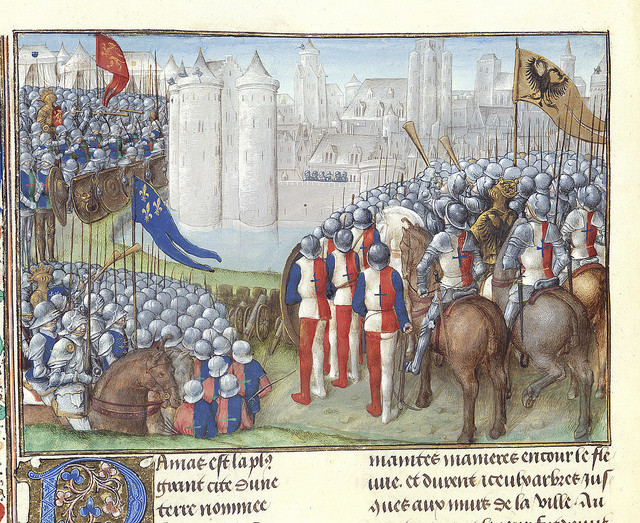 Damas est la plꝰ
grant cite dune
terre nommee
maintes manieres entour le fle
uue. et durent iceulx arbres jus
ques aux murs de la ville. Au